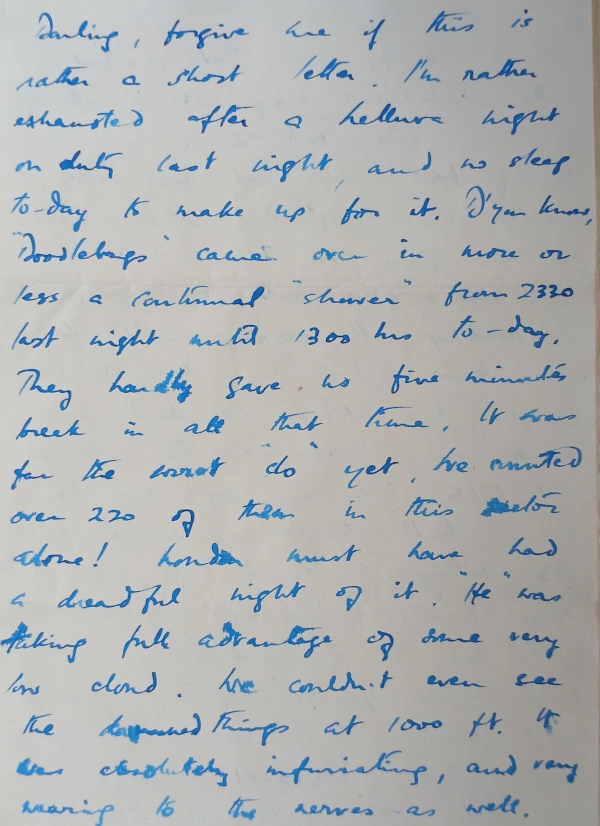 Darling, forgive me if this is
rather a short letter. I'm rather
exhausted after a helluva night
on duty last night, and no sleep
to-day to make up for it. D'you know,
"Doodlebugs" came over in more or
less a continual "shower" from 2330
last night until 1300 hrs to-day.
They hardly gave us five minutes
break in all that time. It was
far the worst "do" yet, we counted
over 220 of them in this sector
alone! London must have had
a dreadful night of it. "He" was
taking full advantage of some very
low cloud. We couldn't even see
the damned things at 1000 ft. It
was absolutely infuriating, and very
wearing to the nerves as well.